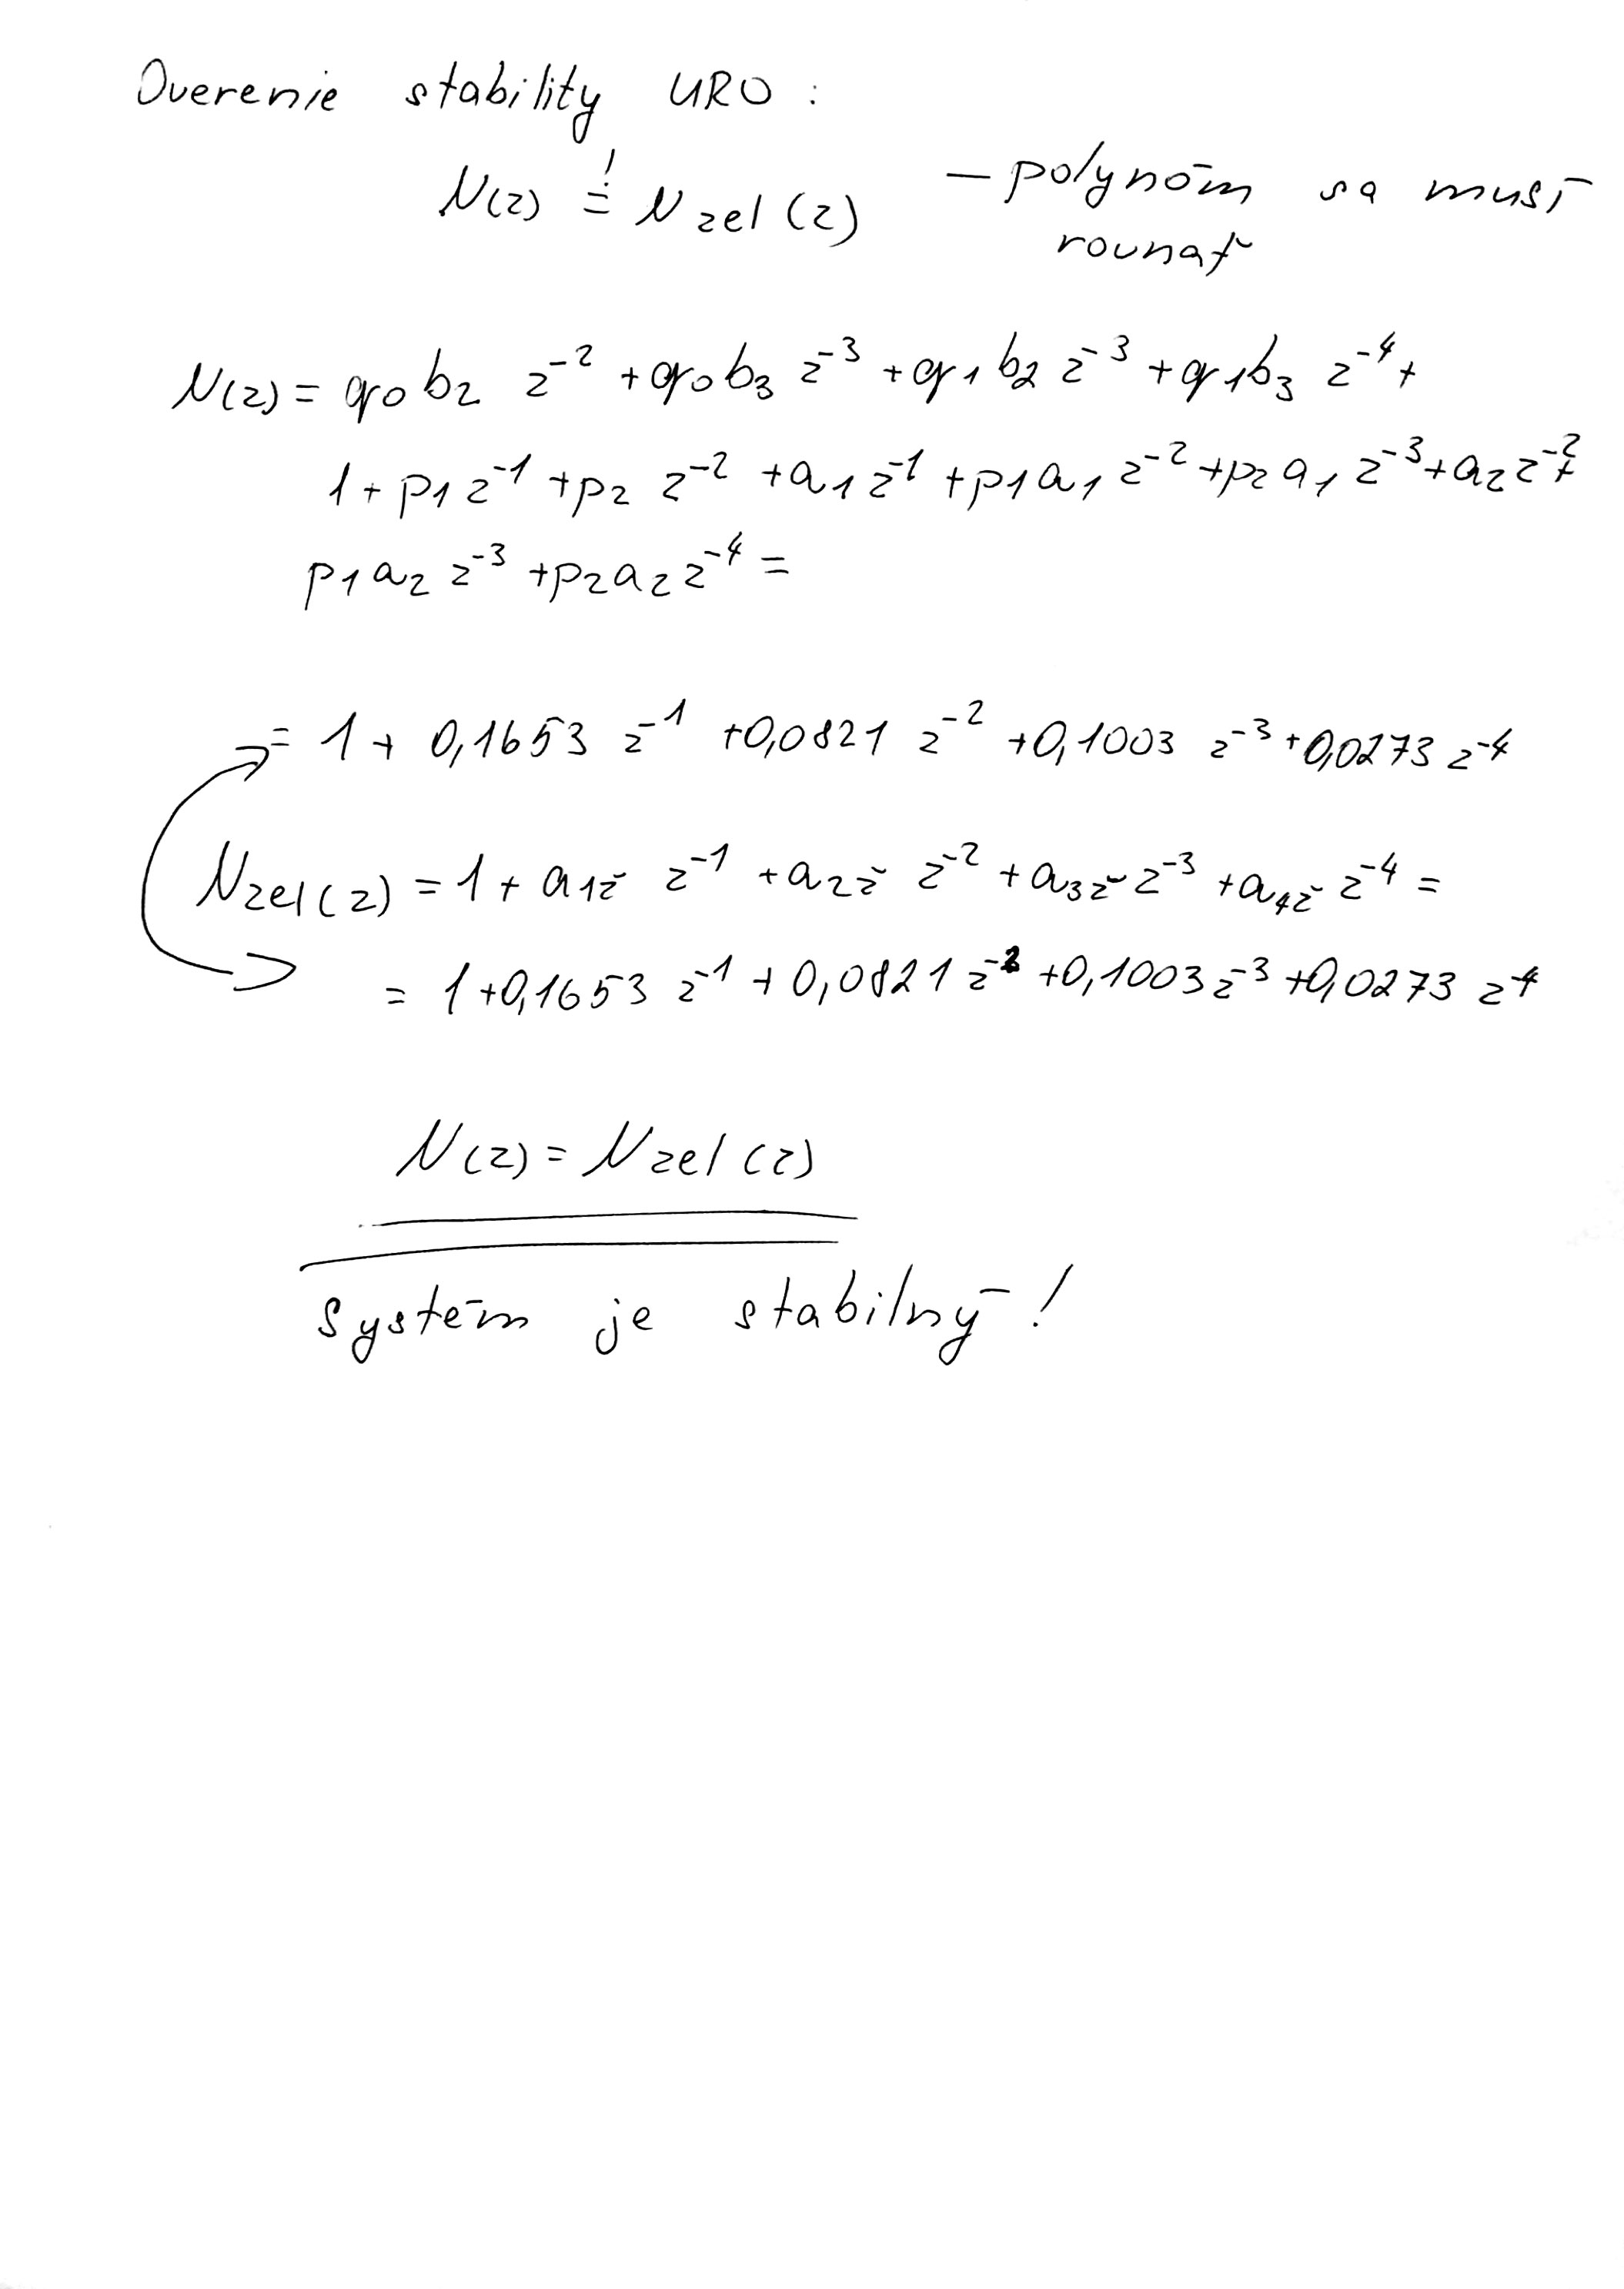 Overenie stability URO :
N(z) =! Nzel (z) — polynóm sa musí
rovnať
N(z) = q0 b2 z^-2 + q0 b3 z^-3 + q1 b2 z^-3 + q1 b3 z^-4 +
1 + p1 z^-1 + p2 z^-2 + a1 z^-1 + p1 a1 z^-2 + p2 a1 z^-3 + a2 z^-2 +
p1 a2 z^-3 + p2 a2 z^-4 =
= 1 + 0,1653 z^-1 + 0,0821 z^-2 + 0,1003 z^-3 + 0,0273 z^-4
Nzel (z) = 1 + a1ž z^-1 + a2ž z^-2 + a3ž z^-3 + a4ž z^-4 =
= 1 + 0,1653 z^-1 + 0,0821 z^-2 + 0,1003 z^-3 + 0,0273 z^-4
N(z) = Nzel (z)
Systém je stabilný !